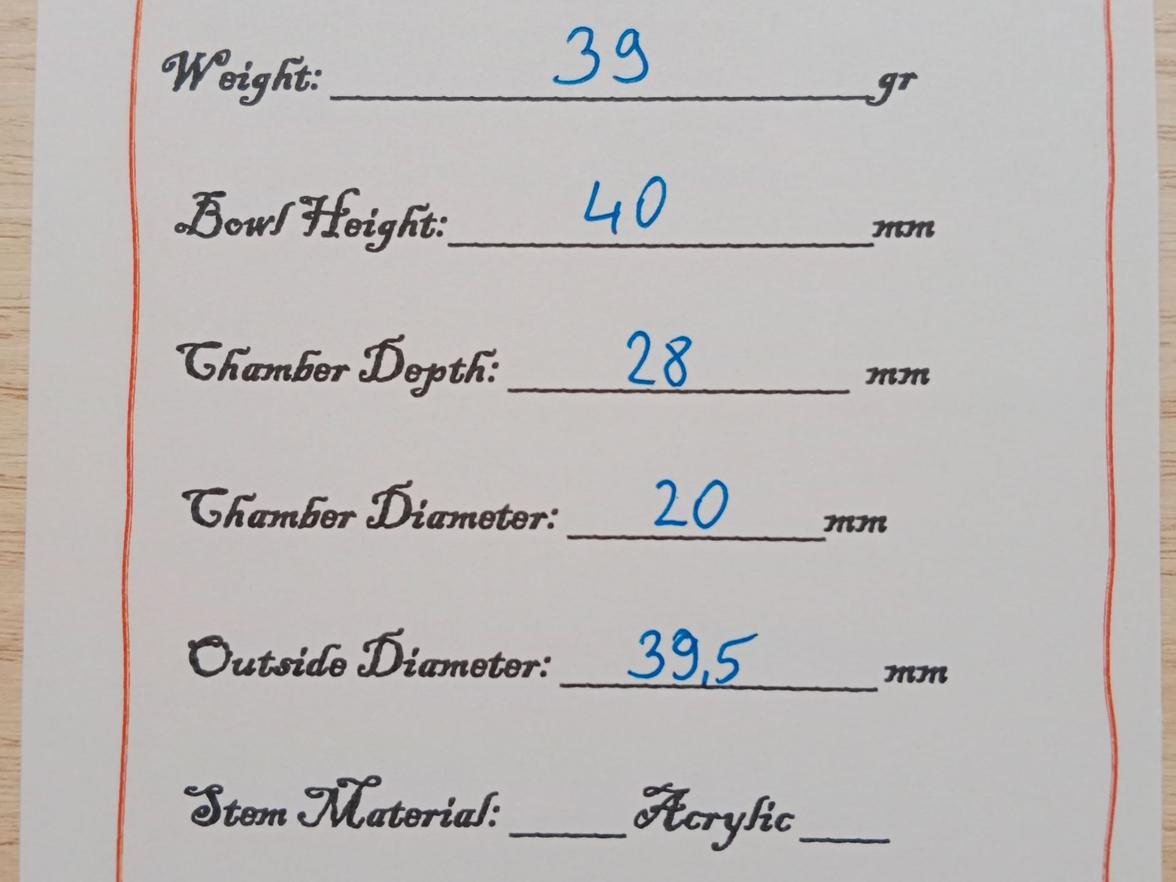 Weight: 39 gr
Bowl Height: 40 mm
Chamber Depth: 28 mm
Chamber Diameter: 20 mm
Outside Diameter: 39,5 mm
Stem Material: Acrylic